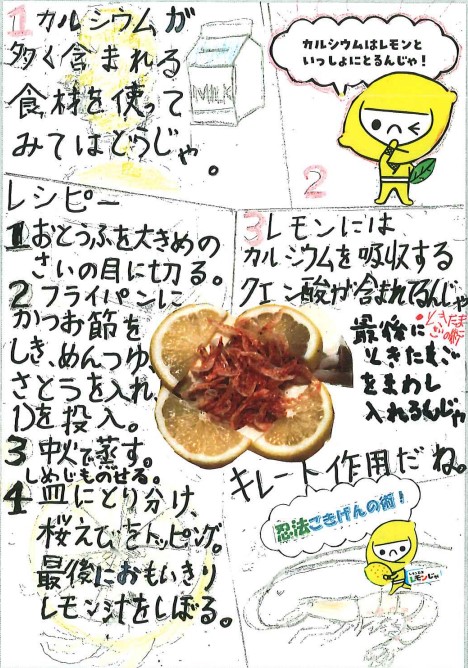 1 カルシウムが
多く含まれる
食材を使って
みてはどうじゃ。
MILK
カルシウムはレモンと
いっしょにとるんじゃ!
2
レシピー
1 おとうふを大きめの
さいの目に切る。
2 フライパンに
かつお節を
しき、めんつゆ
さとうを入れ、
1)を投入。
3 中火で蒸す。
しめじものせる。
4 皿にとり分け、
桜えびをトッピング。
最後におもいきり
レモン汁をしぼる。
3 レモンには
カルシウムを吸収する
クエン酸が含まれてるんじゃ
最後に
ときたまご
をまわし
入れるんじゃ
キレート作用だね。
忍法ごきげんの術!
レモンじゃ